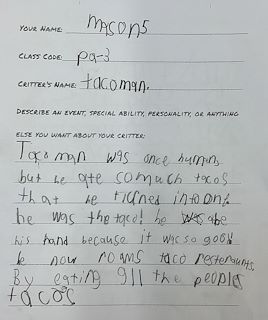 YOUR NAME: mason5
CLASS CODE: pa-3
CRITTER'S NAME: tacoman.
DESCRIBE AN EVENT, SPECIAL ABILITY, PERSONALITY, OR ANYTHING
ELSE YOU WANT ABOUT YOUR CRITTER:
Taco man was once human
but he ate somuch tacos
that he turned into one
he was the taco! he was abe
his hand because it was so good
he now roams taco resterants
By eating all the people
tacos